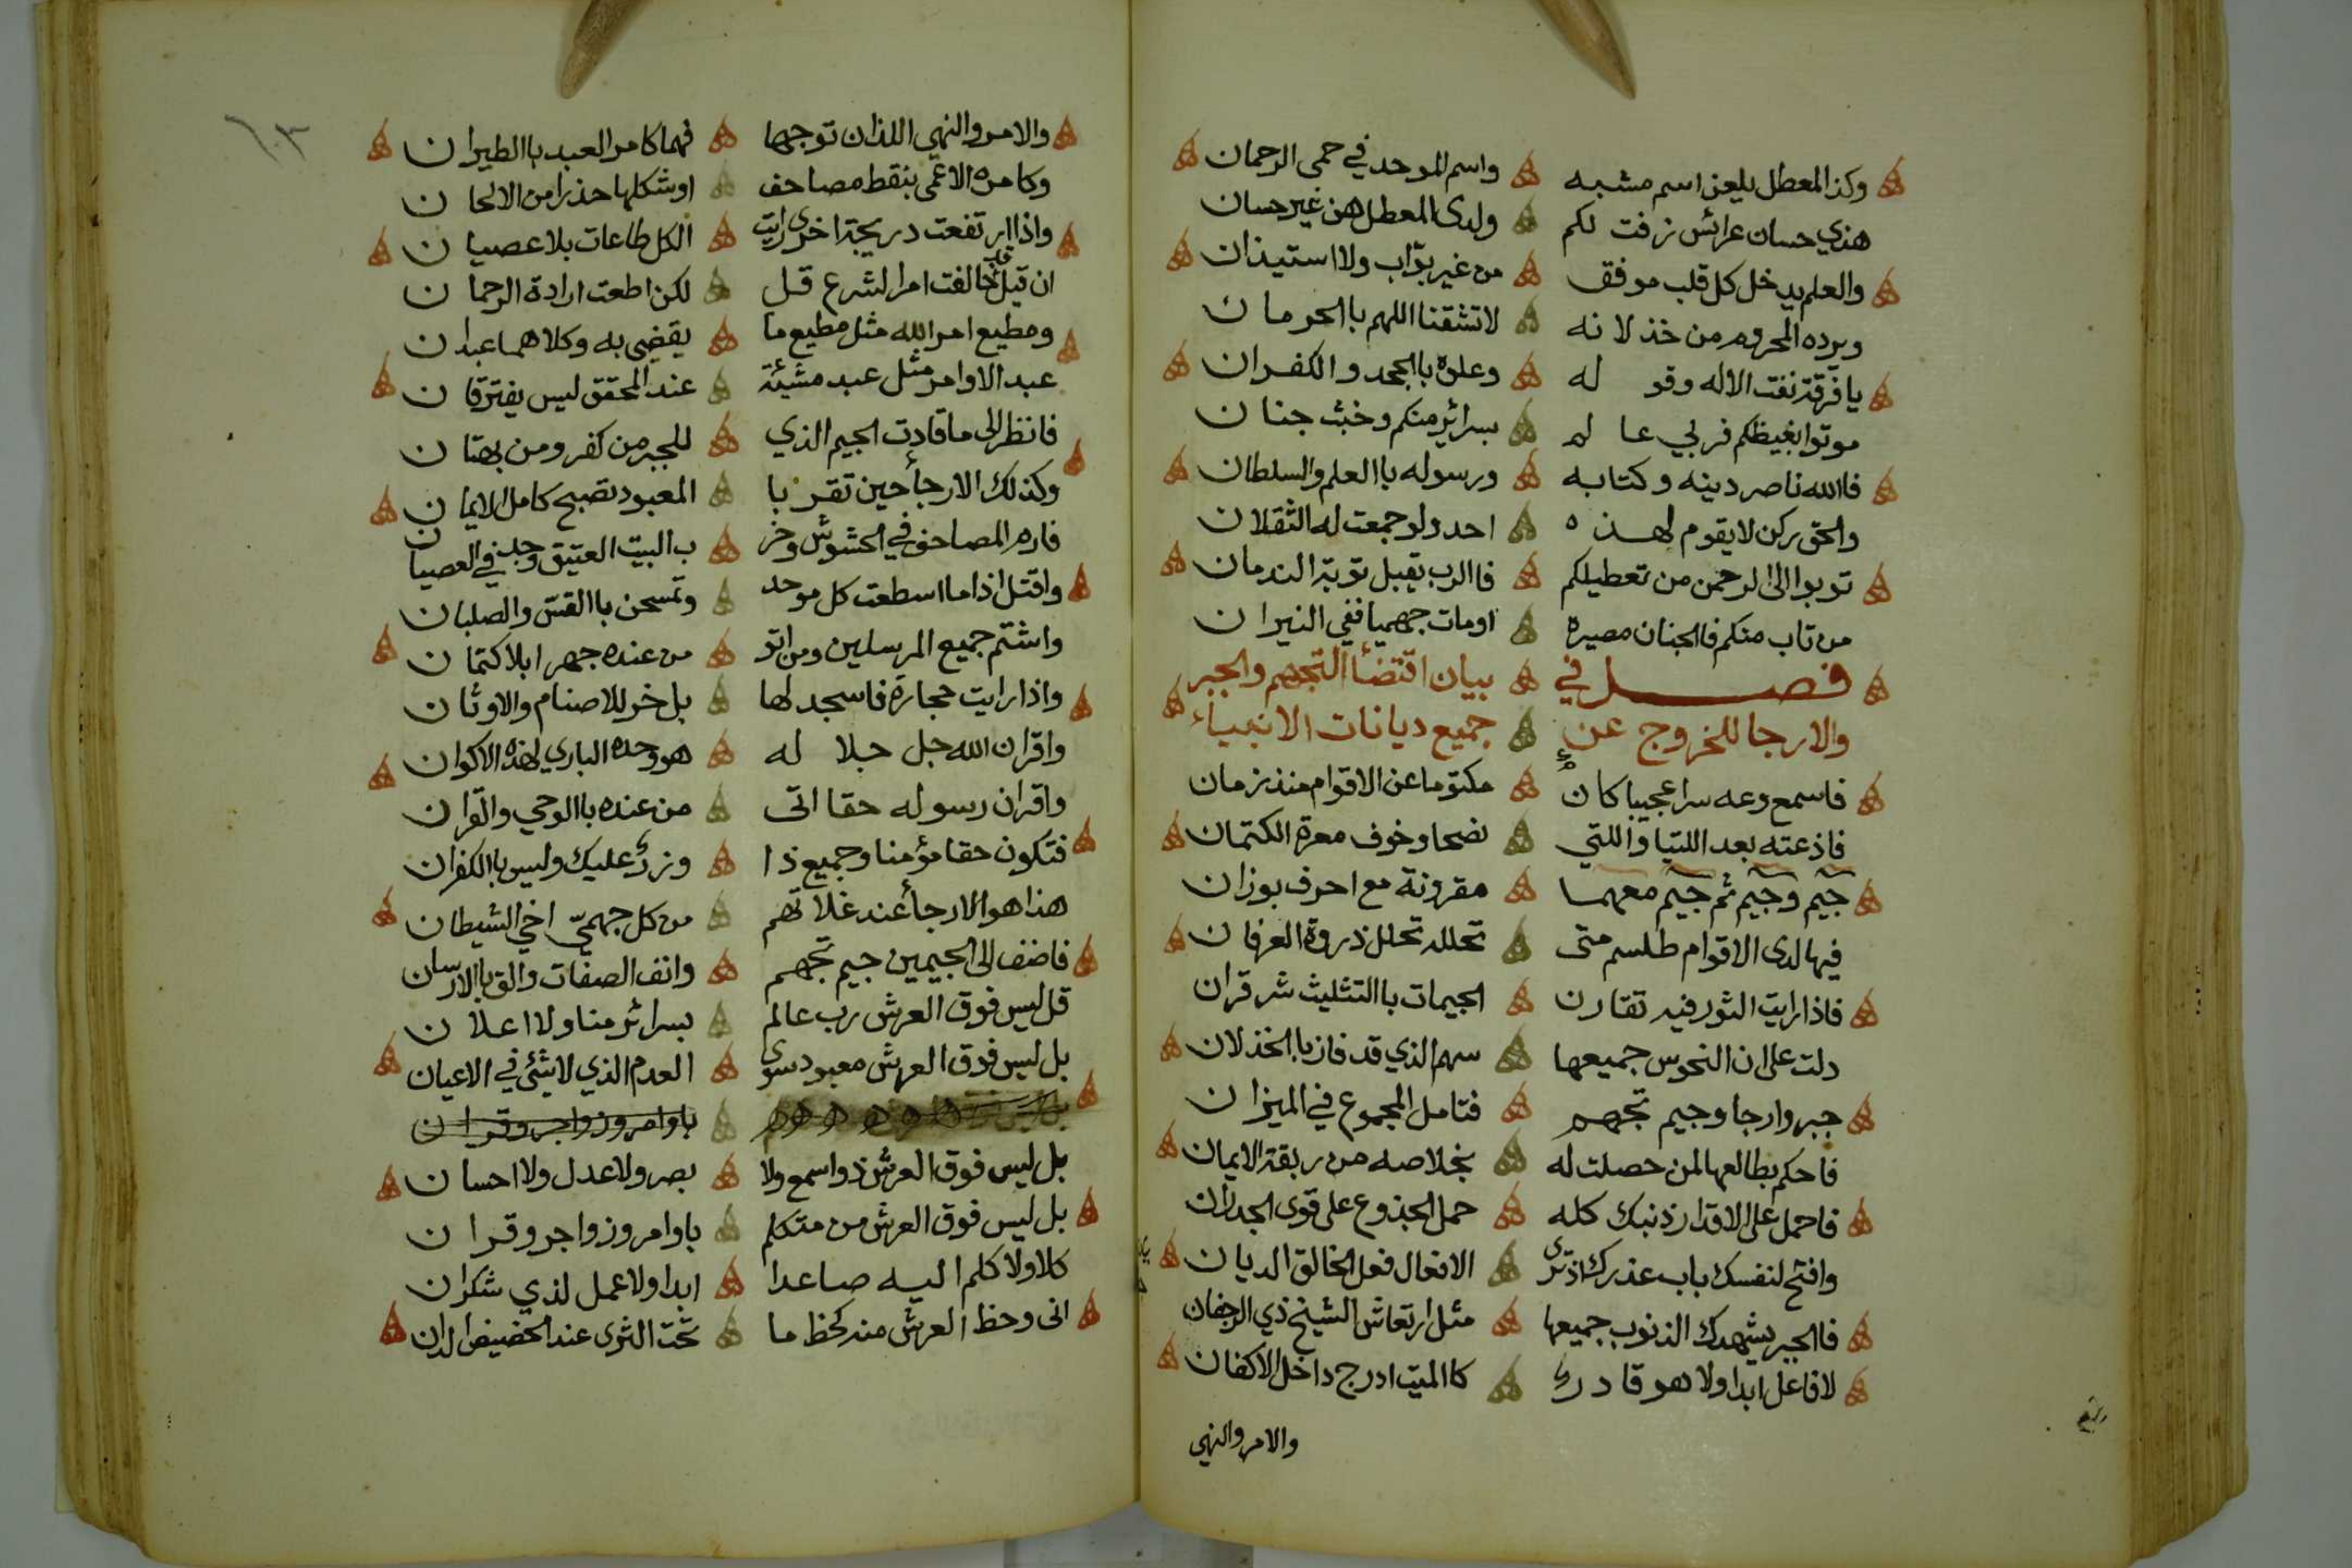 وكذا المعطل يلعن اسم مشبه واسم الموحد في حمى الرحمان
هذي حسان عرائس زفت لكم ولدى المعطل هن غير حسان
والعلم يدخل كل قلب موفق من غير بوّاب ولا استيذان
ويرده المحروم من خذلانه لا تشقنا اللهم باالحرمان
يا فرقة نفت الاله وقوله وعلوه باالجحد والكفران
موتوا بغيظكم فربي عالم بسرائر منكم وخبث جنان
فالله ناصر دينه وكتابه ورسوله باالعلم والسلطان
والحق ركن لا يقوم لهذه احد ولو جمعت له الثقلان
توبوا الى الرحمن من تعطيلكم فاالرب يقبل توبة الندمان
من تاب منكم فاالجنان مصيره اومات جهميا ففي النيران
فصل في بيان اقتضأ التجهم والجبر
والارجا للخروج عن جميع ديانات الانبياء
فاسمع وعه سرا عجيبا كان مكتوما عن الاقوام منذ زمان
فاذعته بعد اللتيا واللتي نصحا وخوف معرة الكتمان
جيم وجيم ثم جيم معهما مقرونة مع احرف بوزان
فيها لدى الاقوام طلسم متى تحلله تحلل ذروة العرفان
فاذا رايت الثور فيه تقارن الجيمات باالتثليث شر قران
دلت على ان النحوس جميعها سهم الذي قد فاز باالخذلان
جبر وارجا وجيم تجهم فتامل المجموع في الميزان
فاحكم بطالعها لمن حصلت له بخلاصه من ربقة الايمان
فاحمل على الاقدار ذنبك كله حمل الجذوع على قوى الجدران
وافتح لنفسك باب عذرك اذ ترى الافعال فعل الخالق الديان
فاالجبر يشهدك الذنوب جميعها مثل ارتعاش الشيخ ذي الرجفان
لا فاعل ابدا ولا هو قادر كاالميت ادرج داخل الاكفان
والامر والنهي
١٠٣
والامر والنهي اللذان توجها فهما كامر العبد باالطيران
وكامره الاعمى بنقط مصاحف اوشكلها حذرا من الالحان
واذا ارتفعت دريجة اخرى رايت الكل طاعات بلا عصيان
ان قيل قد خالفت امر الشرع قل لكن اطعت ارادة الرحمان
ومطيع امر الله مثل مطيع ما يقضي به وكلاهما عبدان
عبد الاوامر مثل عبد مشيئة عند المحقق ليس يفترقان
فانظر الى ما قادت الجيم الذي للجبر من كفر ومن بهتان
وكذلك الارجأ حين تقر با المعبود تصبح كامل الايمان
فارم المصاحف في الحشوش وخر ب البيت العتيق وجد في العصيان
واقتل اذا ما اسطعت كل موحد وتمسحن باالقس والصلبان
واشتم جميع المرسلين ومن اتو من عنده جهرا بلا كتمان
واذا رايت حجارة فاسجد لها بل خر للاصنام والاوثان
واقر ان الله جل جلا له هو وحده الباري لهذه الاكوان
واقر ان رسوله حقا اتى من عنده باالوحي والقران
فتكون حقا مؤمنا وجميع ذا وزر عليك وليس باالكفران
هذا هو الارجأ عند غلاتهم من كل جهميّ اخي الشيطان
فاضف الى الجيمين جيم تجهم وانف الصفات والق باالارسان
قل ليس فوق العرش رب عالم بسرائر منا ولا اعلان
بل ليس فوق العرش معبود سوى العدم الذي لا شئ في الاعيان
باوامر وزواجر وقران
بل ليس فوق العرش ذو اسمع ولا بصر ولا عدل ولا احسان
بل ليس فوق العرش من متكلم باوامر وزواجر وقران
كلا ولا كلم اليه صاعدا ابدا ولا عمل لذي شكران
انى وحظ العرش منه كحظ ما تحت الثرى عند الحضيض الدان